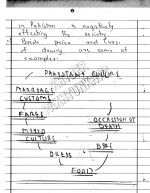 in Pakistan is negatively
effecting the society.
Bride price and curse
of dowry are some of
examples.
PAKISTAN'S CULTURE
MARRIAGE
CUSTOMS
FAIRS
OCCASSION OF
DEATH
MIXED
CULTURE
DRESS
FOOD